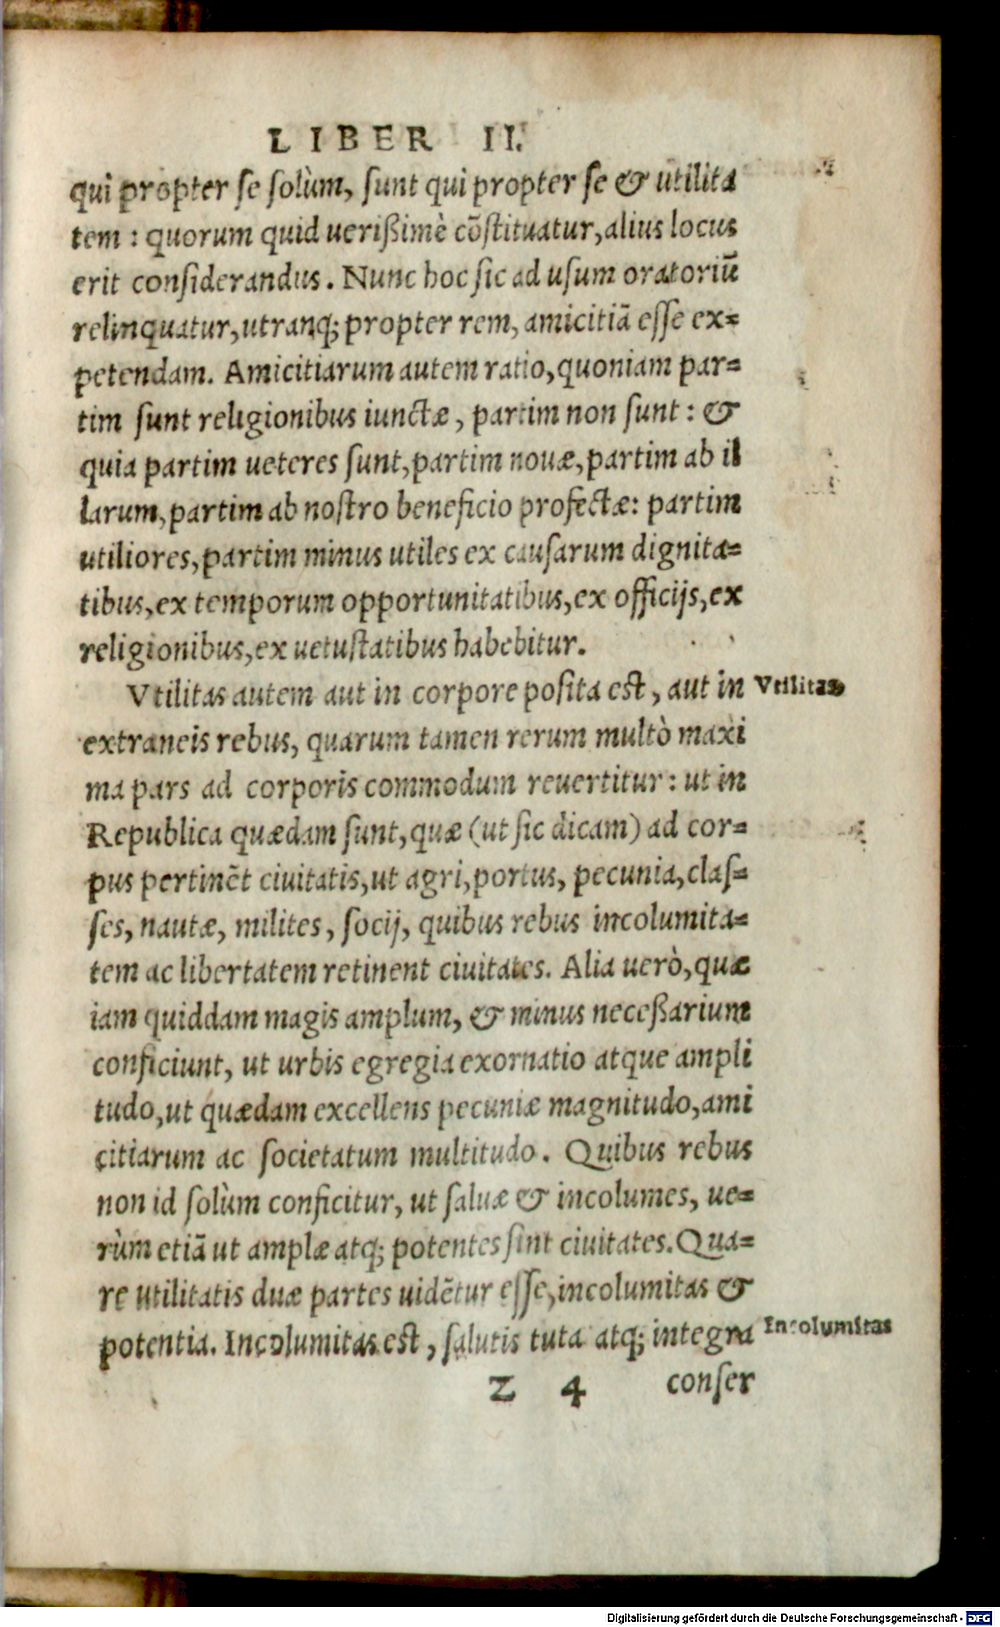 LIBER II.
qui propter se solùm, sunt qui propter se & utilita
tem: quorum quid uerißimè cõstituatur, alius locus
erit considerandus. Nunc hoc sic ad usum oratoriũ
relinquatur, utranq; propter rem, amicitiã esse ex=
petendam. Amicitiarum autem ratio, quoniam par=
tim sunt religionibus iunctæ, partim non sunt: &
quia partim ueteres sunt, partim nouæ, partim ab il
larum, partim ab nostro beneficio profectæ: partim
utiliores, partim minus utiles ex causarum dignita=
tibus, ex temporum opportunitatibus, ex officijs, ex
religionibus, ex uetustatibus habebitur.
Vtilitas autem aut in corpore posita est, aut in Vtilitas
extraneis rebus, quarum tamen rerum multò maxi
ma pars ad corporis commodum reuertitur: ut in
Republica quædam sunt, quæ (ut sic dicam) ad cor=
pus pertinẽt ciuitatis, ut agri, portus, pecunia, clas=
ses, nautæ, milites, socij, quibus rebus incolumita=
tem ac libertatem retinent ciuitates. Alia uerò, quæ
iam quiddam magis amplum, & minus neceßarium
conficiunt, ut urbis egregia exornatio atque ampli
tudo, ut quædam excellens pecuniæ magnitudo, ami
citiarum ac societatum multitudo. Quibus rebus
non id solùm conficitur, ut saluæ & incolumes, ue=
rùm etiã ut amplæ atq; potentes sint ciuitates. Qua=
re utilitatis duæ partes uidẽtur esse, incolumitas &
potentia. Incolumitas est, salutis tuta atq; integra Incolumitas
Z 4 conser
Digitalisierung gefördert durch die Deutsche Forschungsgemeinschaft - DFG